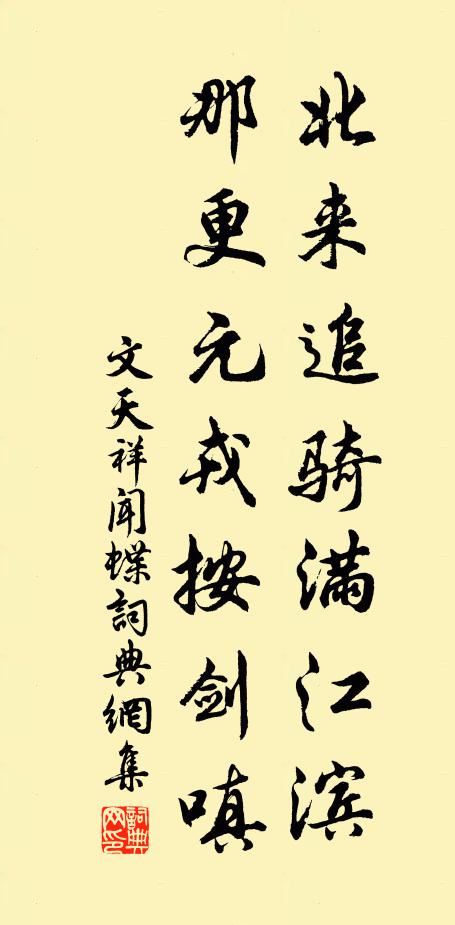 北来追骑满江滨
那更元戎按剑嗔
文天祥闻蝶詞典網集
詞典网印